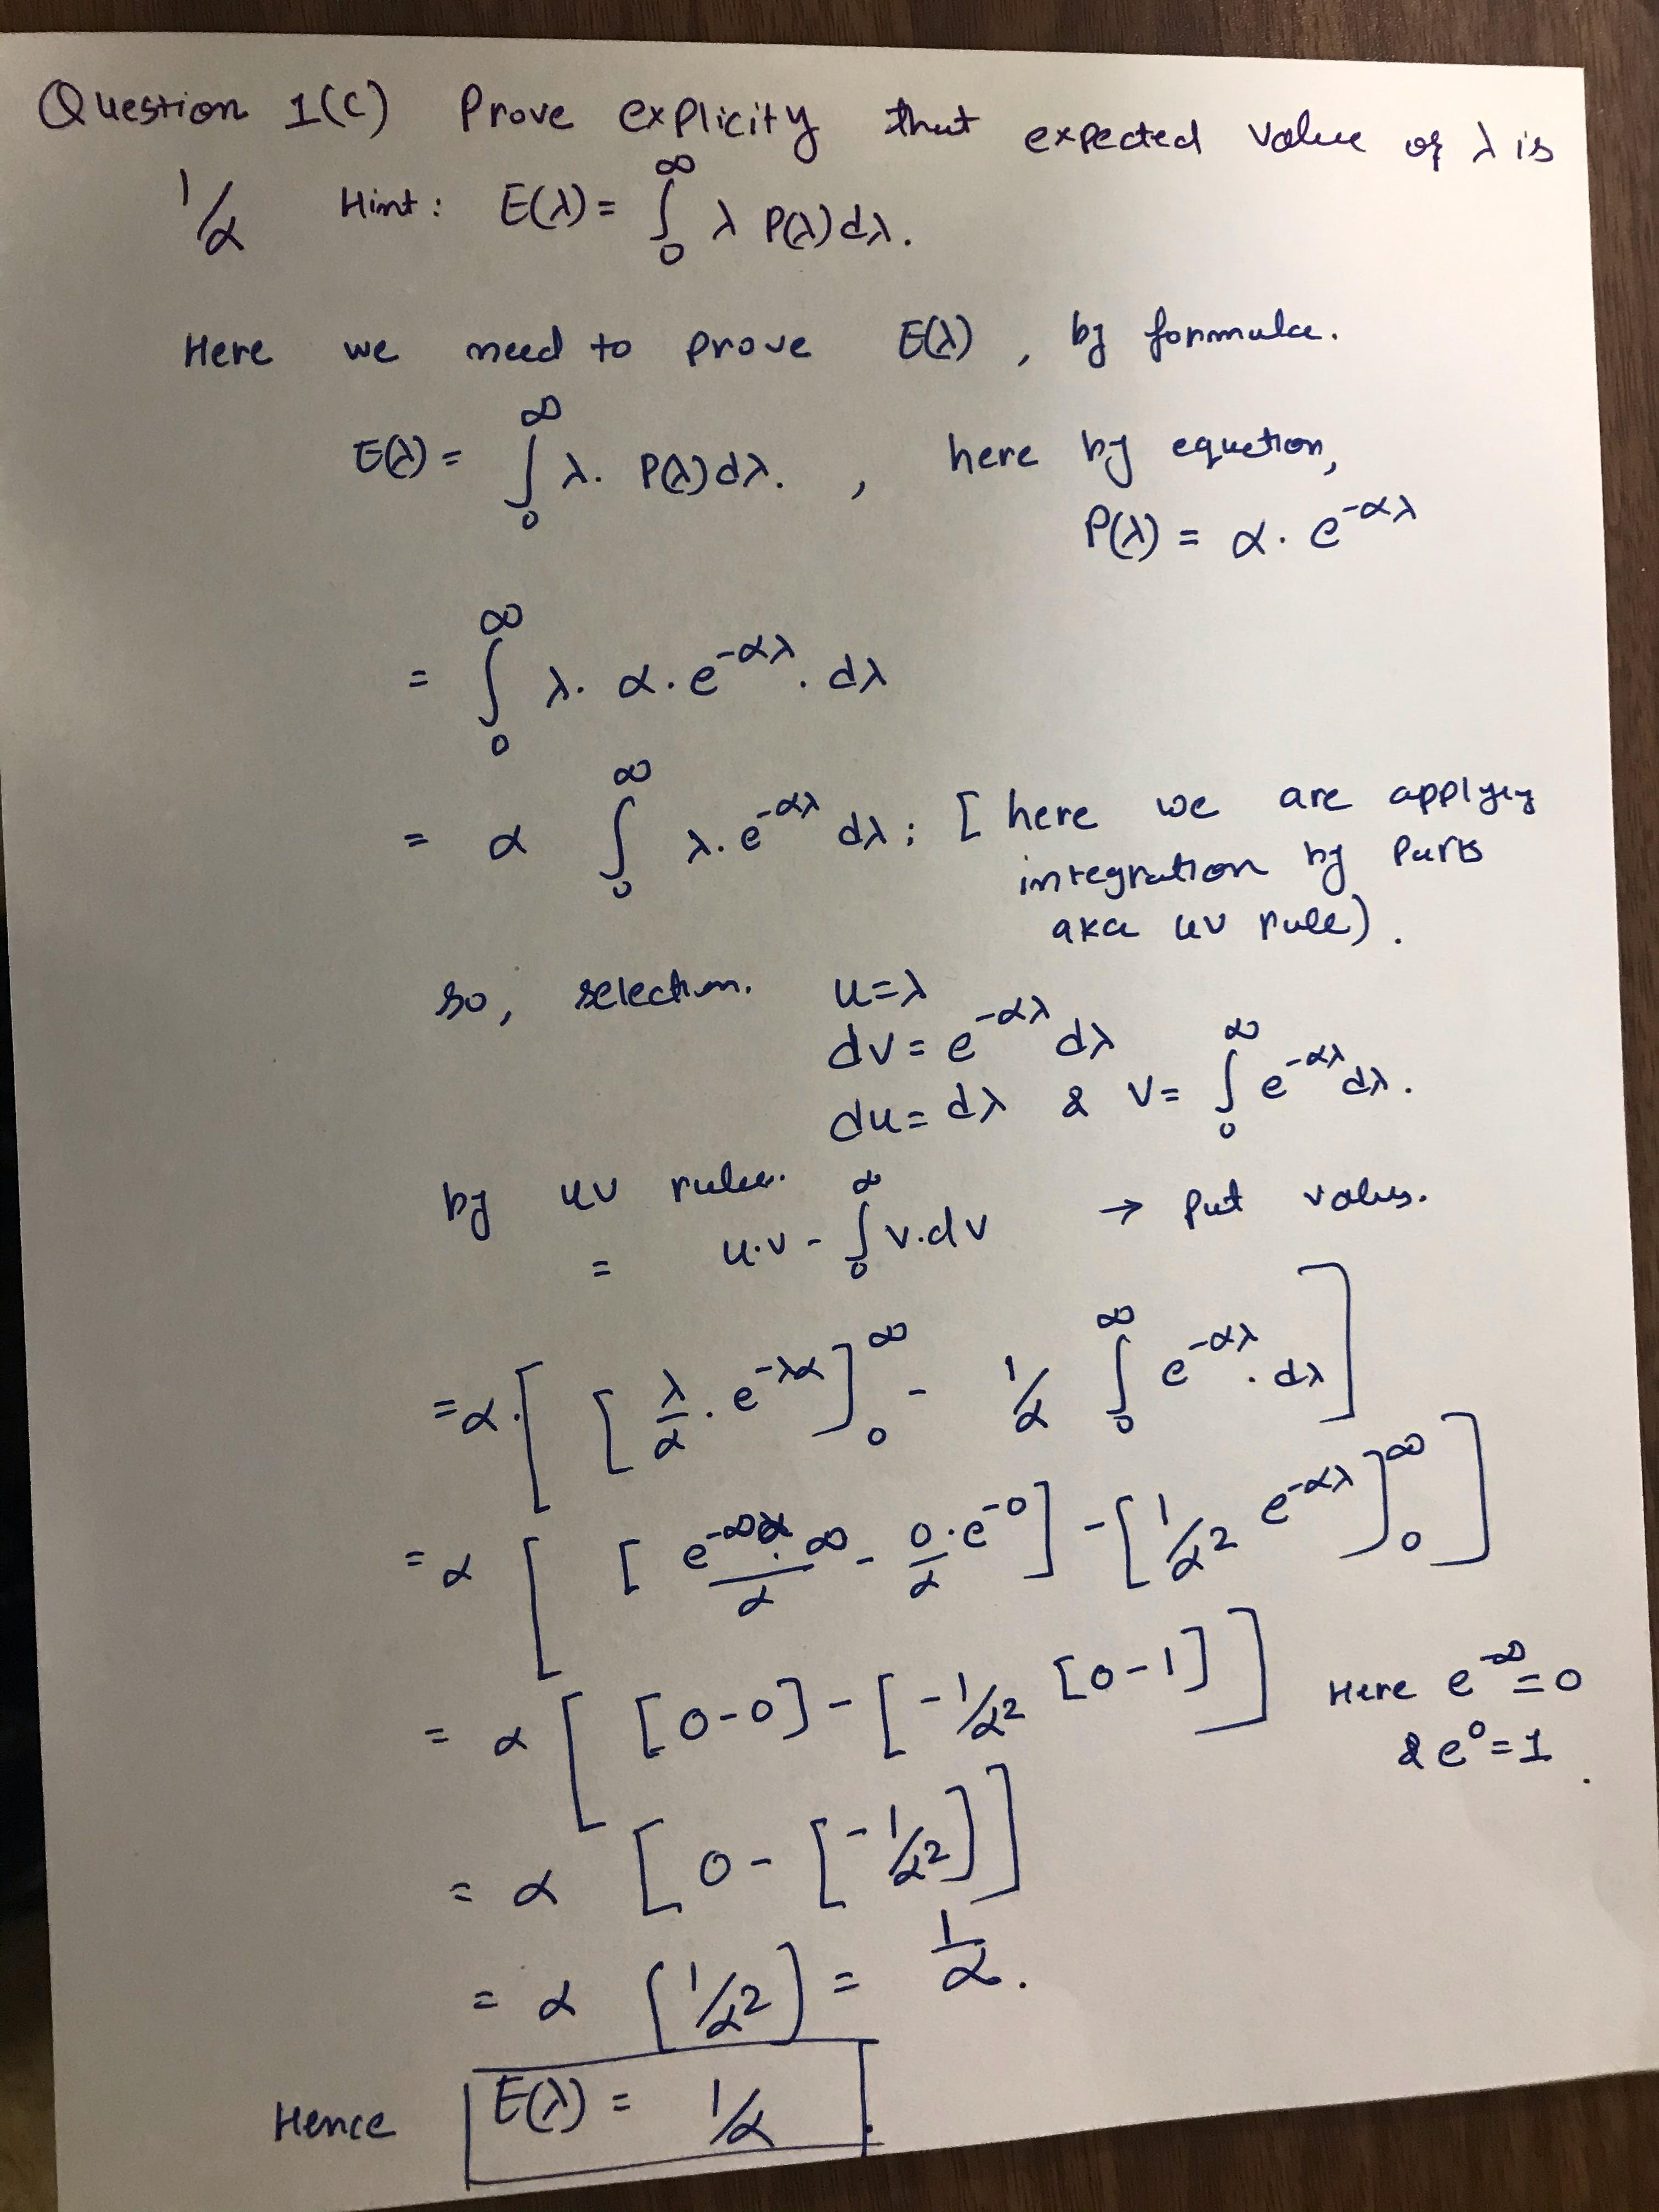 Question 1(C) Prove explicity that expected value of λ is
1/α Hint: E(λ) = ∫₀^∞ λ P(λ) dλ.
Here we need to prove E(λ), by formula.
E(λ) = ∫₀^∞ λ. P(λ) dλ. , here by equetion,
P(λ) = α. e^{-αλ}
= ∫₀^∞ λ. α. e^{-αλ}. dλ
= α ∫₀^∞ λ. e^{-αλ} dλ; [ here we are applying
integration by parts
aka uv rule).
so, selection. u=λ
dv = e^{-αλ} dλ
du = dλ & v = ∫₀^∞ e^{-αλ} dλ.
by uv rule.
= u.v - ∫₀^∞ v.dv → put values.
= α. [ [ λ/α . e^{-λα} ]₀^∞ - 1/α ∫₀^∞ e^{-αλ}. dλ ]
= α [ [ e^{-∞α}. ∞/α - 0/α . e^{-0} ] - [ 1/α² e^{-αλ} ]₀^∞ ]
= α [ [0-0] - [ -1/α² [0-1] ] Here e^{-∞} = 0
& e⁰ = 1
= α [ 0 - [ -1/α² ] ]
= α ( 1/α² ) = 1/α.
Hence E(λ) = 1/α.